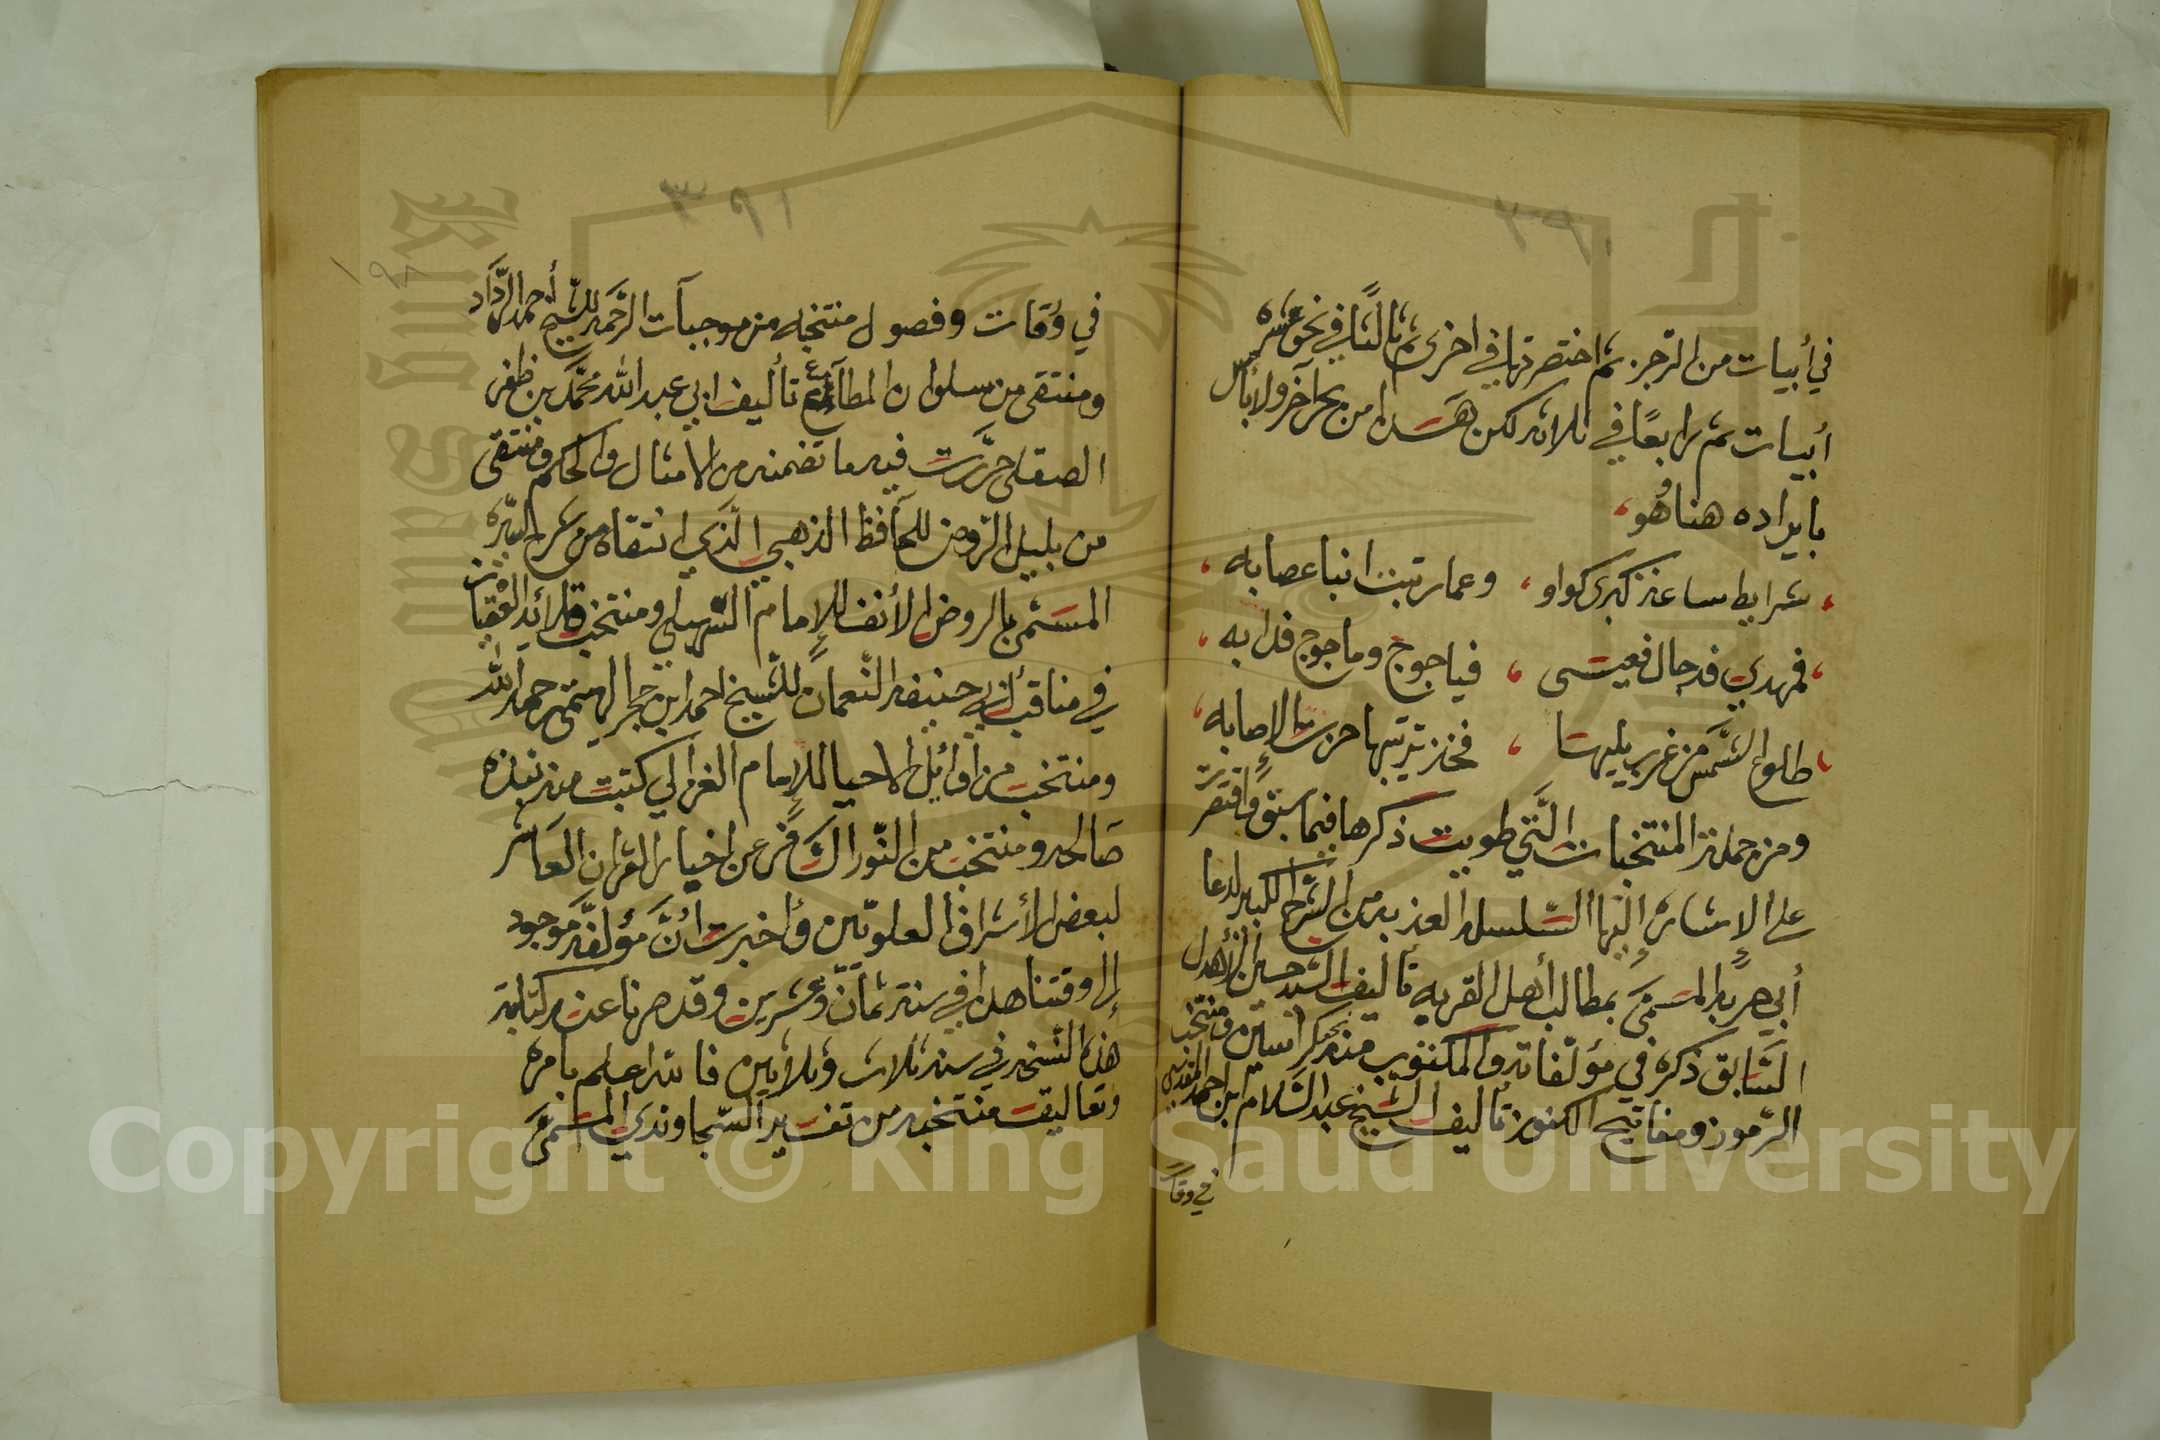 ٣٩٠
في أبيات من الرجز ثم اختصرتها في اخرى ثالثا في نحو عشره
أبيات ثم رابعًا في ثلاثة لكن هذا من بحر آخر ولا بأس
بايراده هنا هُو
شرايط ساعة كبرى كواو وعمارتبت انبا عصابه
فمهدي فدجال فعيسى فياجوج وماجوج فدابه
طلوع الشمس من غرب يليها فخذ ترتيبها حزت الإصابه
ومن جملة المنتخبات الَّتي طويت ذكرها فيما سبق واقتصرت
على الإشارة إليها السلسلة العذبه من الشرح الكبير لدعا
أبي حربه المسمى بمطالب أهل القربه تأليف السيد حسين الأهدل
السَّابق ذكره في مؤلفاته والمكتوب منه نحو كراسين ومنتخب
الرموز ومفاتيح الكنوز تأليف الشيخ عبد السَّلام ابن احمد المقدسي
في وقات
٣٩١
في وقات وفصول منتخبه من موجبات الرحمه للشيخ أحمد الردَّاد
ومنتقى من سلوان المطاع تأليف ابي عبد الله محمَّد بن ظفر
الصقلي حرَّرت فيه ما تضمنه من الامثال والحكم ومنتقى
من بلبل الروض للحافظ الذهبي الَّذي انتقاه من شرح السيره
المسمى بالروض الأنف للإمام السّهيلي ومنتخب قلائد العقيان
في مناقب أبي حنيفه النّعمان للشيخ احمد ابن حجر الهيتمي رحمه الله
ومنتخب من اوائل الاحيا للإمام الغزالي كتبت منه نبذه
صالحه ومنتخب من النّور السَّافر عن اخيار القرن العَاشر
لبعض الأشراف العلويّين وأخبرت أنَّ مؤلفَّه موجود
إلى وقتنا هذا في سنة ثمان وعشرين وقد صرنا عند كتابة
هذه النسخه في سنة ثلاث وثلاثين فالله اعلم بامره
وتعاليق منتخبه من تفسير السّجاوندي المسمى